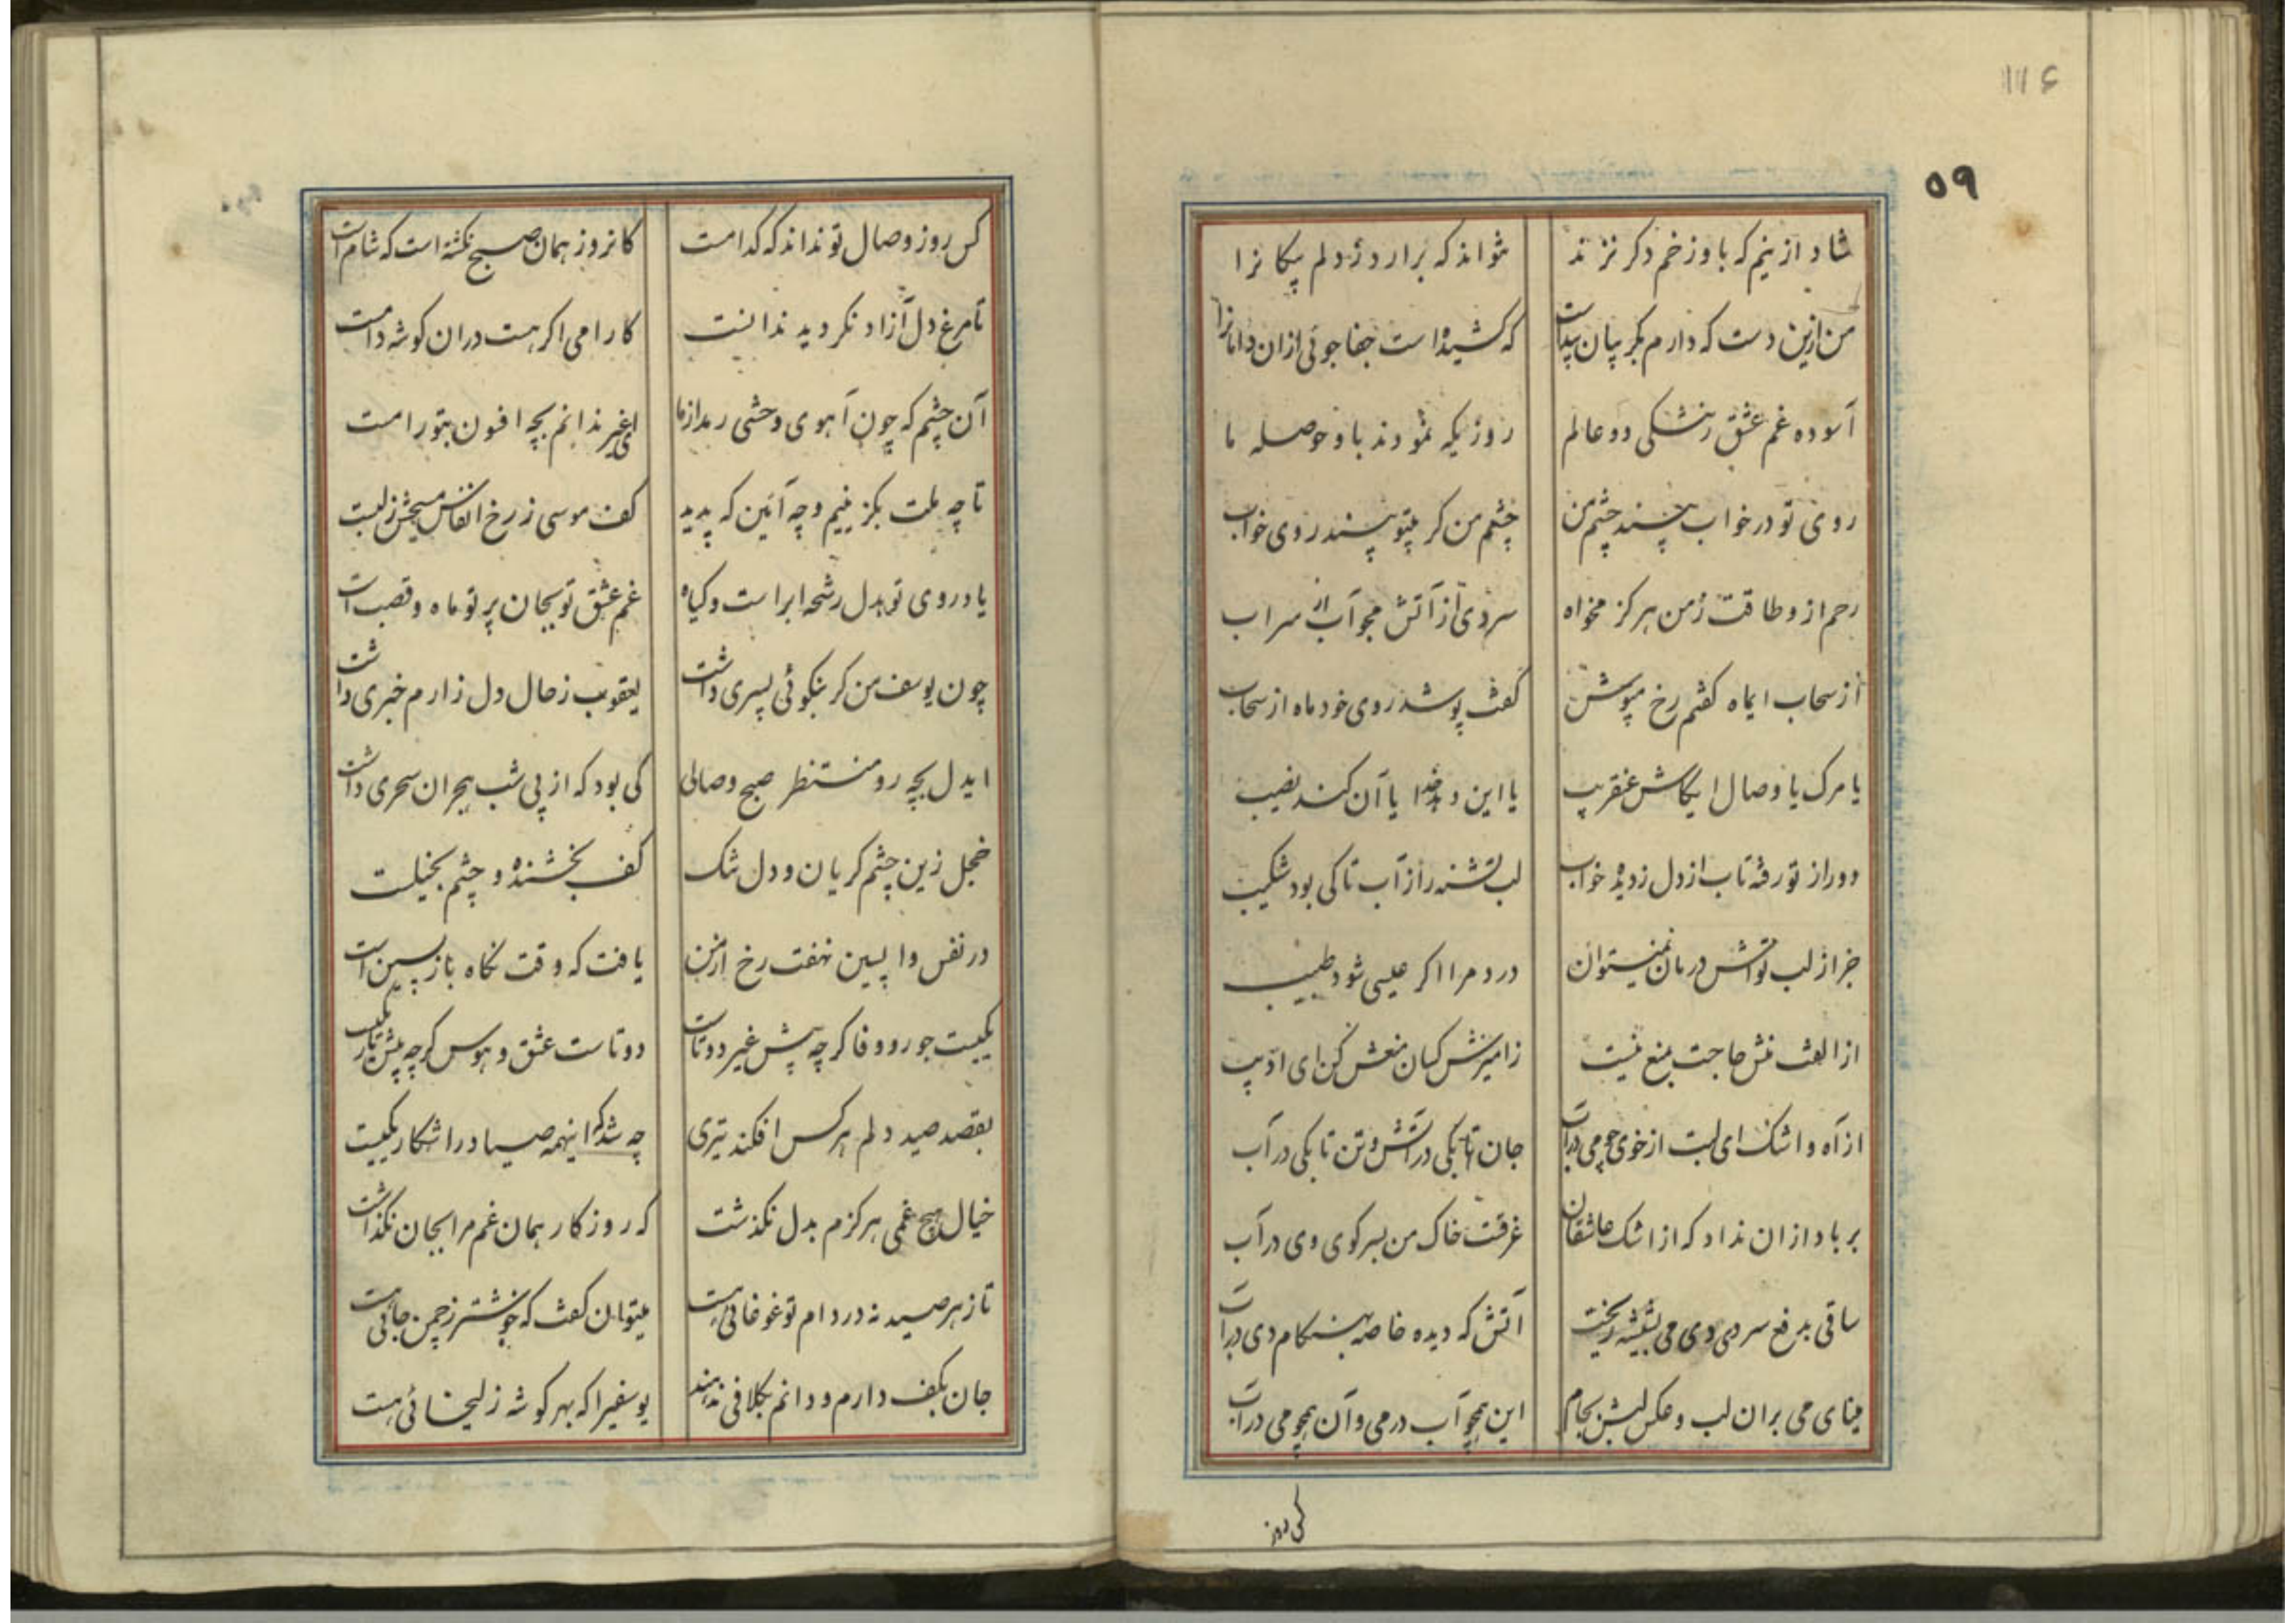 ۱۱۶
۵۹
شاد ازینم که باو زخم دکر نزند نتواند که برارد ز دلم پیکانرا
من ازین دست که دارم بکریبان پیداست که کشیده است جفاجوئی ازان دامانرا
آسوده غم عشق ز تنگی دو عالم روزیکه نمودند باو حوصله ما
روی تو در خواب بیند چشم من چشم من کر بیتو بیند روی خواب
رحم ازو طاقت ز من هرکز مخواه سردی از آتش مجو آب از سراب
از سحاب ایماه کفتم رخ مپوش کفت پوشد روی خود ماه از سحاب
یا مرک یا وصال ایکاش عنقریب یا این دهد خدا یا آن کند نصیب
دور از تو رفته تاب از دل ز دیده خواب لب تشنه را ز آب تا کی بود شکیب
جز از لب تواش درمان نمیتوان درد مرا اکر عیسی شود طبیب
از الفت منش حاجت بمنع نیست ز امیزش کسان منعش کن ای ادیب
از آه و اشک ای لبت از خوی چو می در آب جان تا بکی در آتش و تن تا بکی در آب
بر باد ازان نداد که از اشک عاشقان غرقست خاک من بسر کوی وی در آب
ساقی بدفع سردی دی می بشیشه ریخت آتش که دیده خاصه بهنکام دی در آب
مینای می بران لب و عکس لبش بجام این همچو آب در می و آن همچو می در آب
کس روز
کس روز وصال تو نداند که کدامست کانروز همان صبح نکشته است که شام است
تا مرغ دل آزاد نکردید ندانست کارامی اکر هست دران کوشه دامست
آن چشم که چون آهوی وحشی رمد از ما ای غیر ندانم بچه افسون بتو رامست
تا چه ملت بکزینیم و چه آئین که پدید کف موسی ز رخ انفاس مسیحش ز لبست
یاد روی تو بدل رشحه ابر است و کیاه غم عشق تو بجان پرتو ماه و قصب است
چون یوسف من کر بنکوئی پسری داشت یعقوب ز حال دل زارم خبری داشت
ایدل بچه رو منتظر صبح وصالی کی بود که از پی شب هجران سحری داشت
خجل زین چشم کریان و دل تنک کف بخشنده و چشم بخیلست
در نفس واپسین نهفت رخ از من یافت که وقت نکاه باز پسین است
یکیست جور و وفا کرچه پیش غیر دوتاست دوتاست عشق و هوس کرچه پیش یار یکیست
بقصد صید دلم هرکس افکند تیری چه شد که اینهمه صیاد را شکار یکیست
خیال هیچ غمی هرکزم بدل نکذشت که روزکار همان غم مرا بجان نکذاشت
تا ز هر صید نه در دام تو غوغائی هست میتوان کفت که خوشتر ز چمن جائی هست
جان بکف دارم و دانم بکلافی ندهند یوسفیرا که بهر کوشه زلیخائی هست